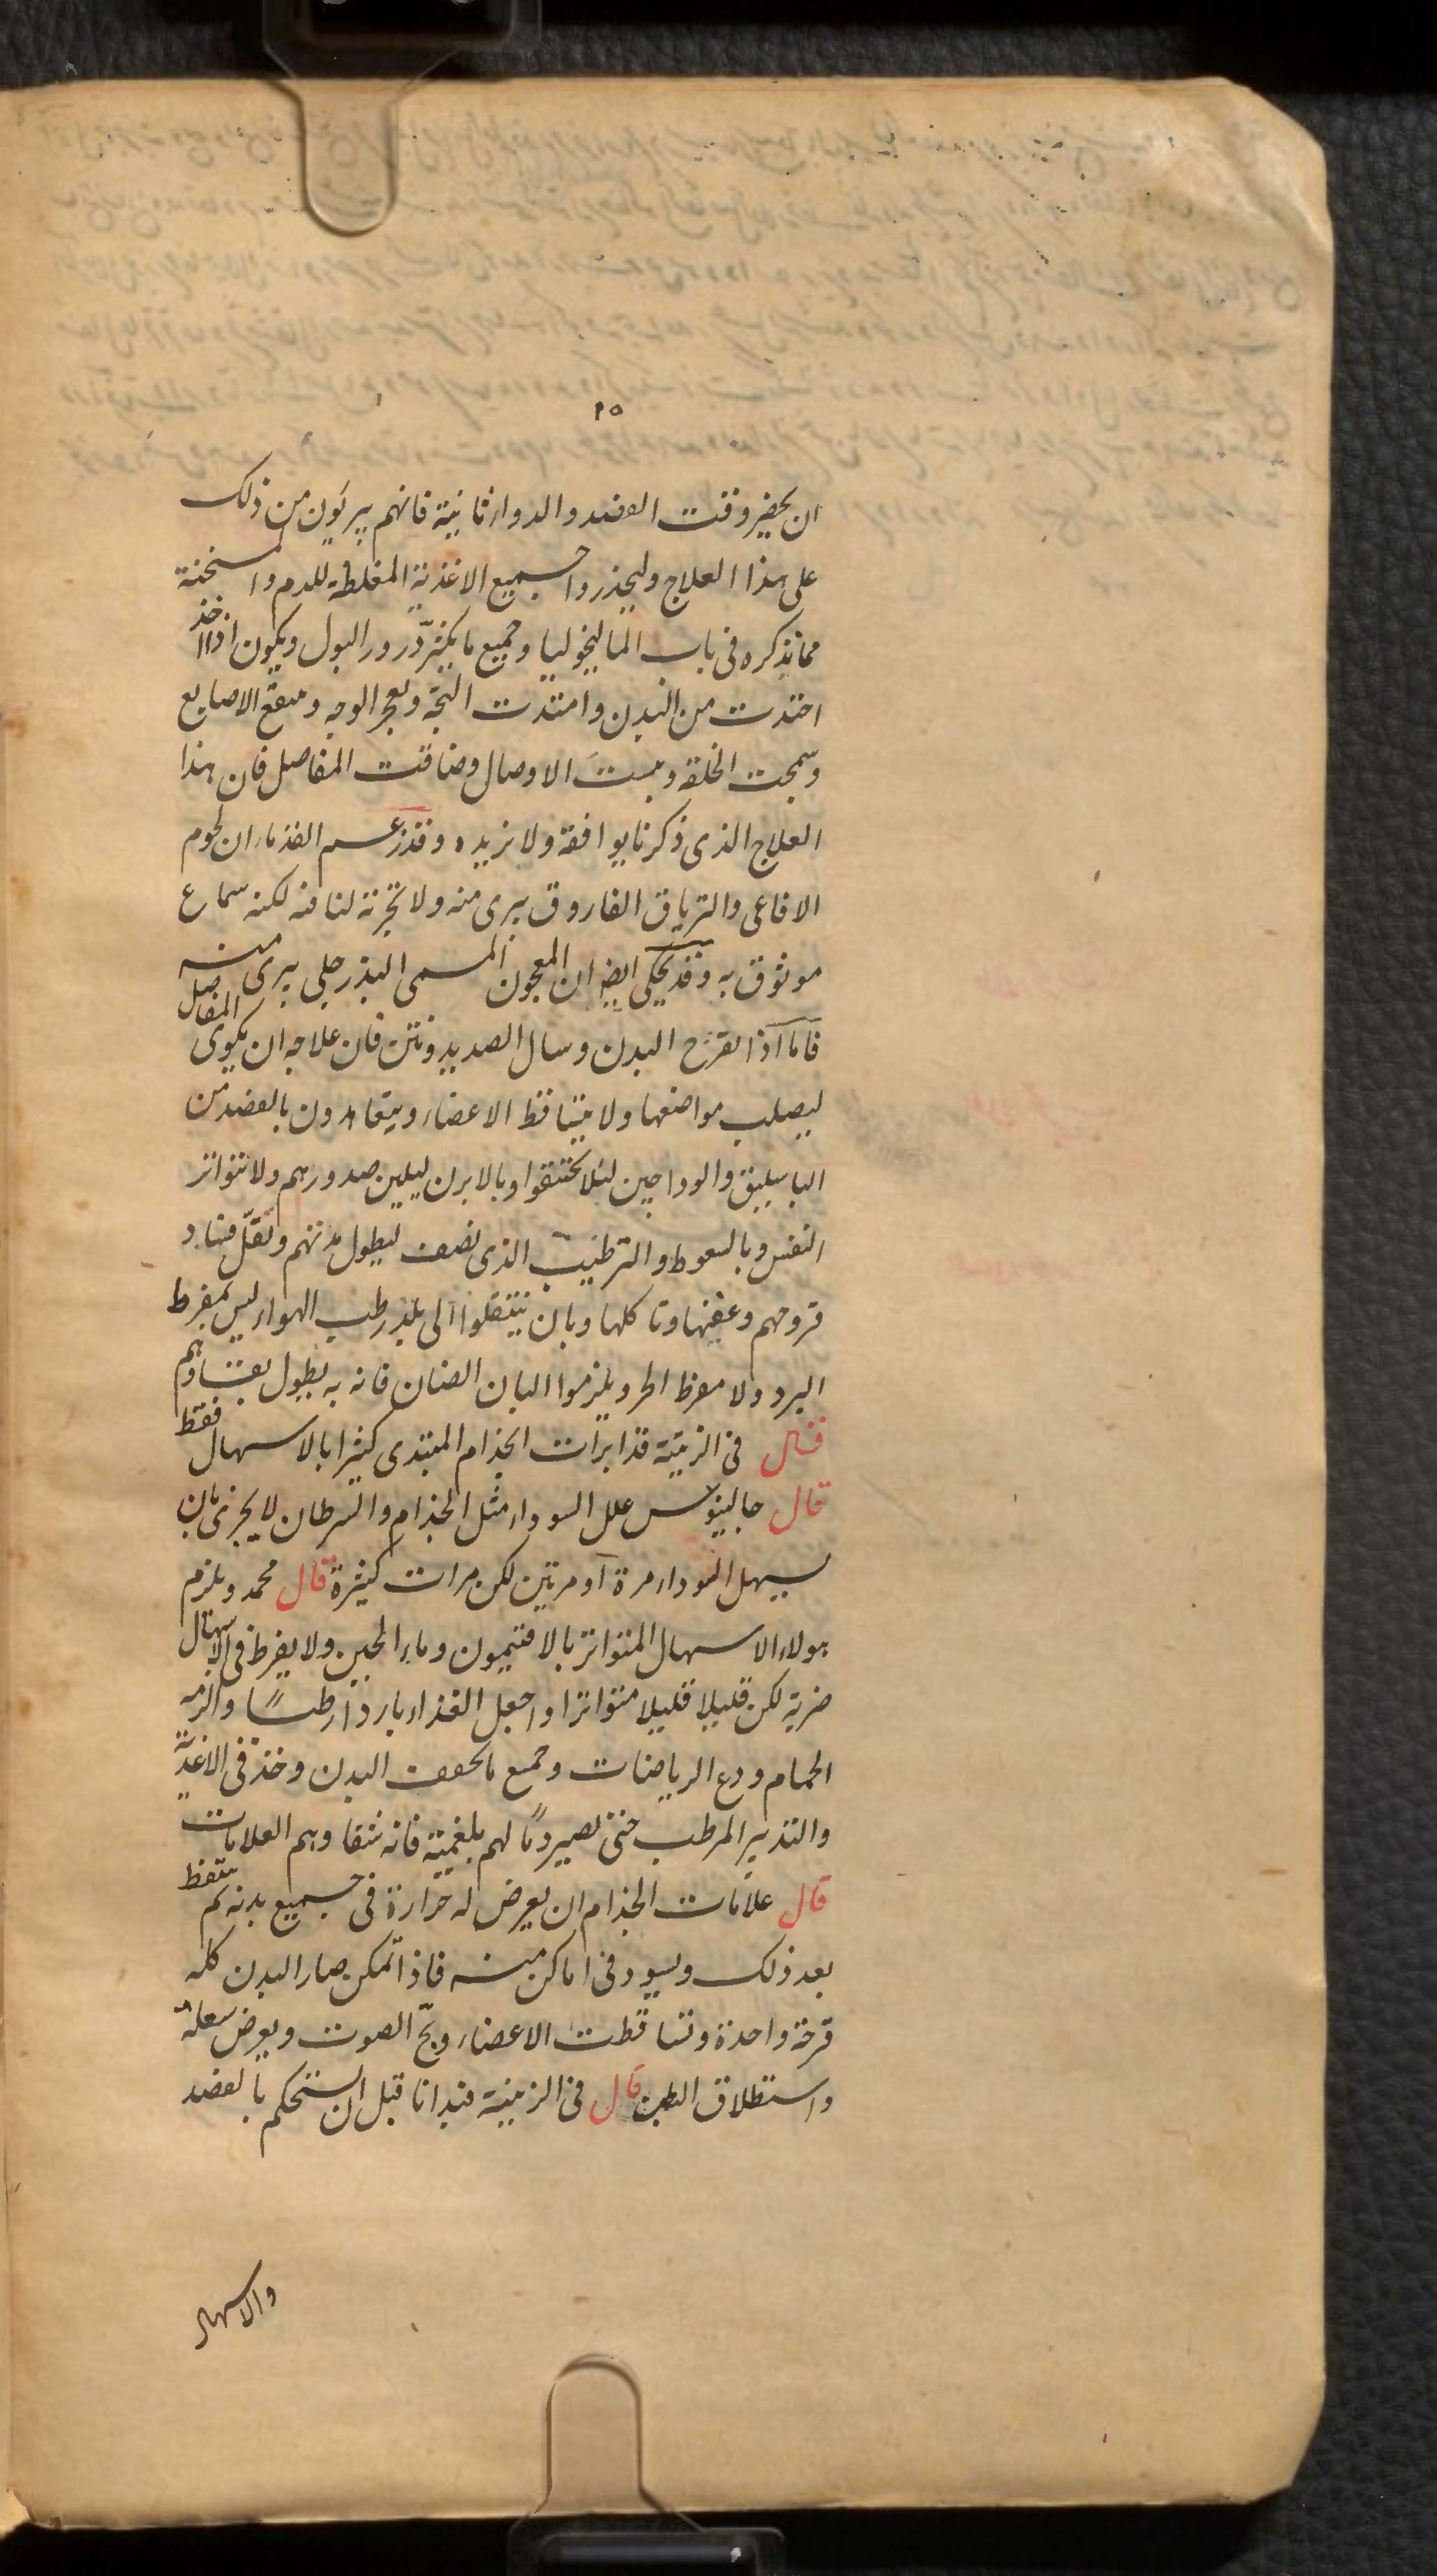 ٢٥
ان يحضر وقت الفصد والدواء ثانية فانهم يبرئون من ذلك
على هذا العلاج وليحذروا جميع الاغذية المغلظة للدم والمسخنة
مما نذكره فى باب الماليخوليا وجميع ما يكثر درور البول ويكون اذا اخذ
احتدت من البدن وامتدت البحة وتعجر الوجه و الاصابع
وسمجت الخلقة ويبست الاوصال وضاقت المفاصل فان هذا
العلاج الذى ذكرنا يوافقه ولا يزيده وقد زعم القدماء ان لحوم
الافاعى والترياق الفاروق يبرى منه ولا تجربة لنا فيه لكنه سماع
موثوق به وقد يحكى ايضا ان المعجون المسمى البذرجلى يبرى منه
فاما اذا تقرح البدن وسال الصديد ونتن فان علاجه ان يكوى المفاصل
ليصلب مواضعها ولا يتساقط الاعضاء ويتعاهدون بالفصد من
الباسليق والوداجين لئلا يختنقوا وبالابزن ليلين صدورهم ولا تتواتر
النفس وبالسعوط والترطيب الذى نصف ليطول مدتهم وتقل فساد
قروحهم وعفنها وتاكلها وبان ينتقلوا الى بلد رطب الهواء ليس بمفرط
البرد ولا مفرط الحر ويلزموا البان الضان فانه به يطول بقاؤهم
قال فى الزينة قد ابرات الجذام المبتدى كثيرا بالاسهال فقط
قال جالينوس علل السوداء مثل الجذام والسرطان لا يجزى بان
يسهل السوداء مرة او مرتين لكن مرات كثيرة قال محمد ويلزم
هولاء الاسهال المتواتر بالافتيمون وماء الجبن ولا يفرط فى الاسهال
ضربة لكن قليلا قليلا متواترا واجعل الغذاء باردا رطبا والزمه
الحمام ودع الرياضات وجميع ما يجفف البدن وخذ فى الاغذية
والتدبير المرطب حتى تصير دمالهم بلغمية فانه شفاوهم العلامات
قال علامات الجذام ان يعرض له حرارة فى جميع بدنه ثم يتنفط
بعد ذلك ويسود فى اماكن منه فاذا تمكن صار البدن كله
قرحة واحدة وتساقطت الاعضاء وبح الصوت ويعرض سعلة
واستطلاق البطن قال فى الزينة فيدانا قبل ان يستحكم بالفصد
والاسهال